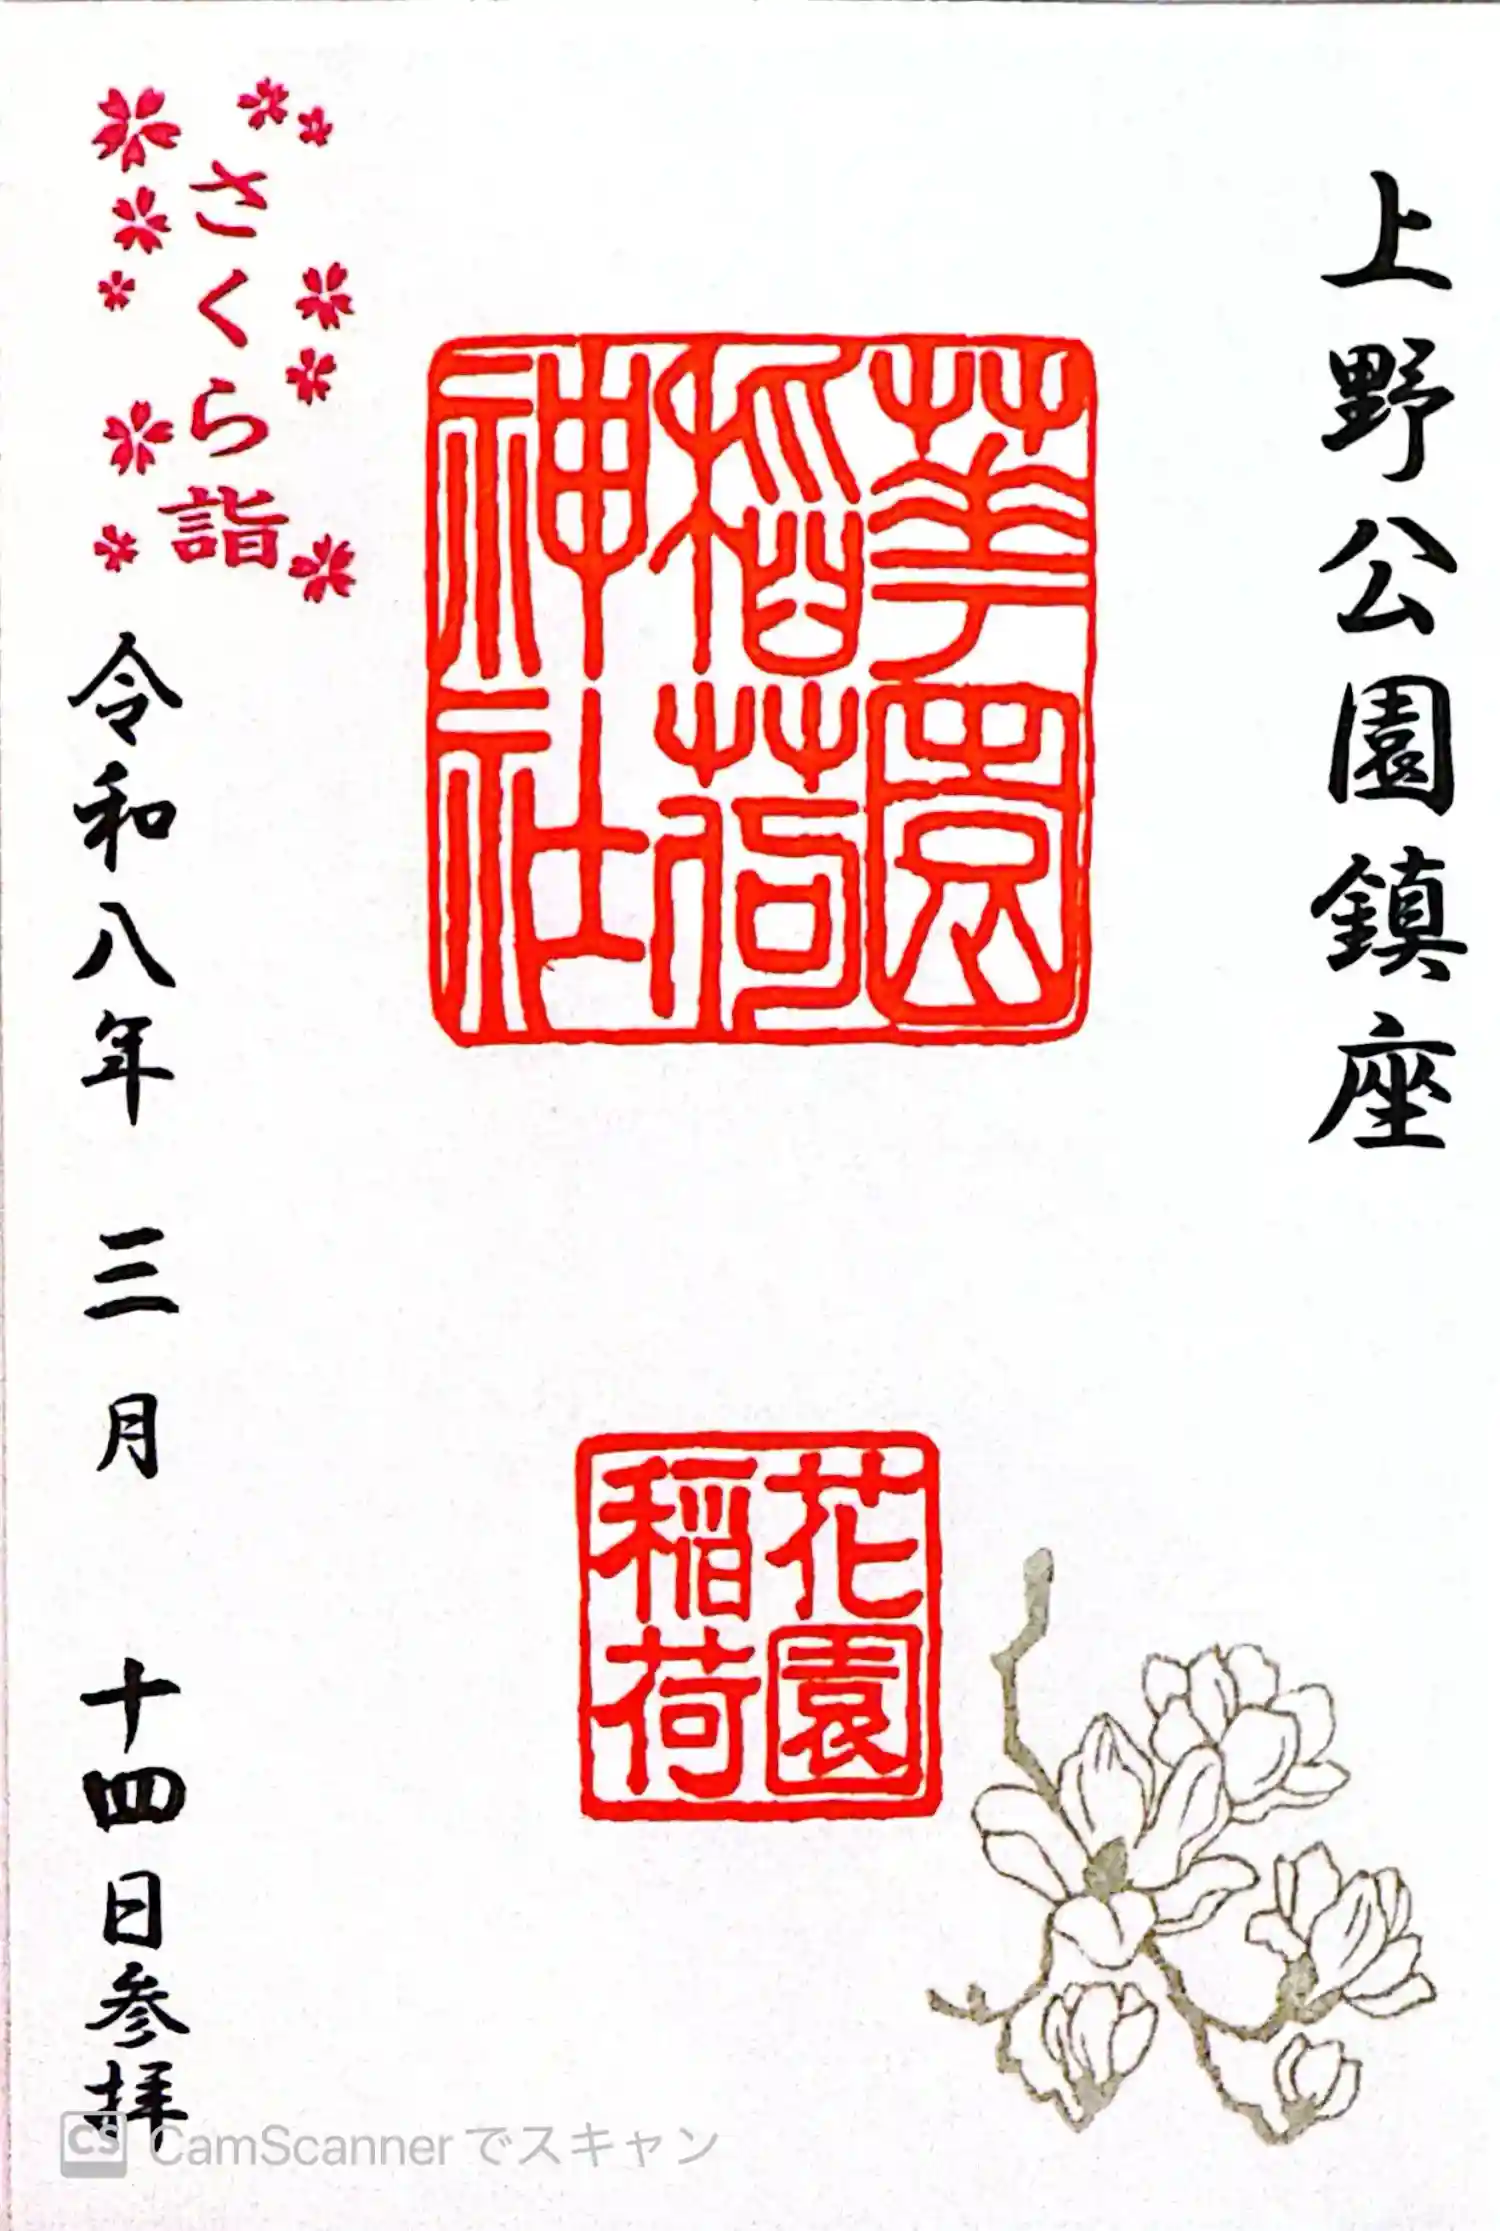 上野公園鎮座
華園
稲荷
神社
花園
稲荷
さくら詣
令和八年 三月 十四日参拝
CS CamScannerでスキャン